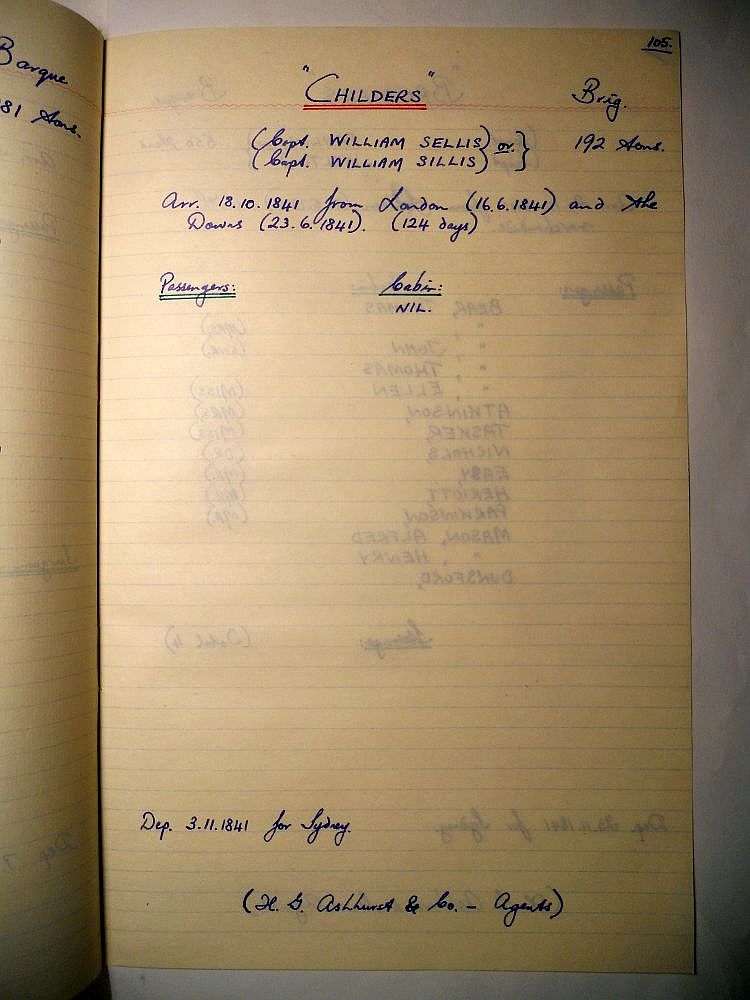 Barque
81 tons.
105.
"CHILDERS"
Brig.
(Capt. WILLIAM SELLIS) or }
(Capt. WILLIAM SILLIS)
192 tons.
Arr. 18.10.1841 from London (16.6.1841) and the
Downs (23.6.1841). (124 days)
Passengers:
Cabin:
NIL.
Dep. 3.11.1841 for Sydney.
(H. G. Ashhurst & Co. - Agents)